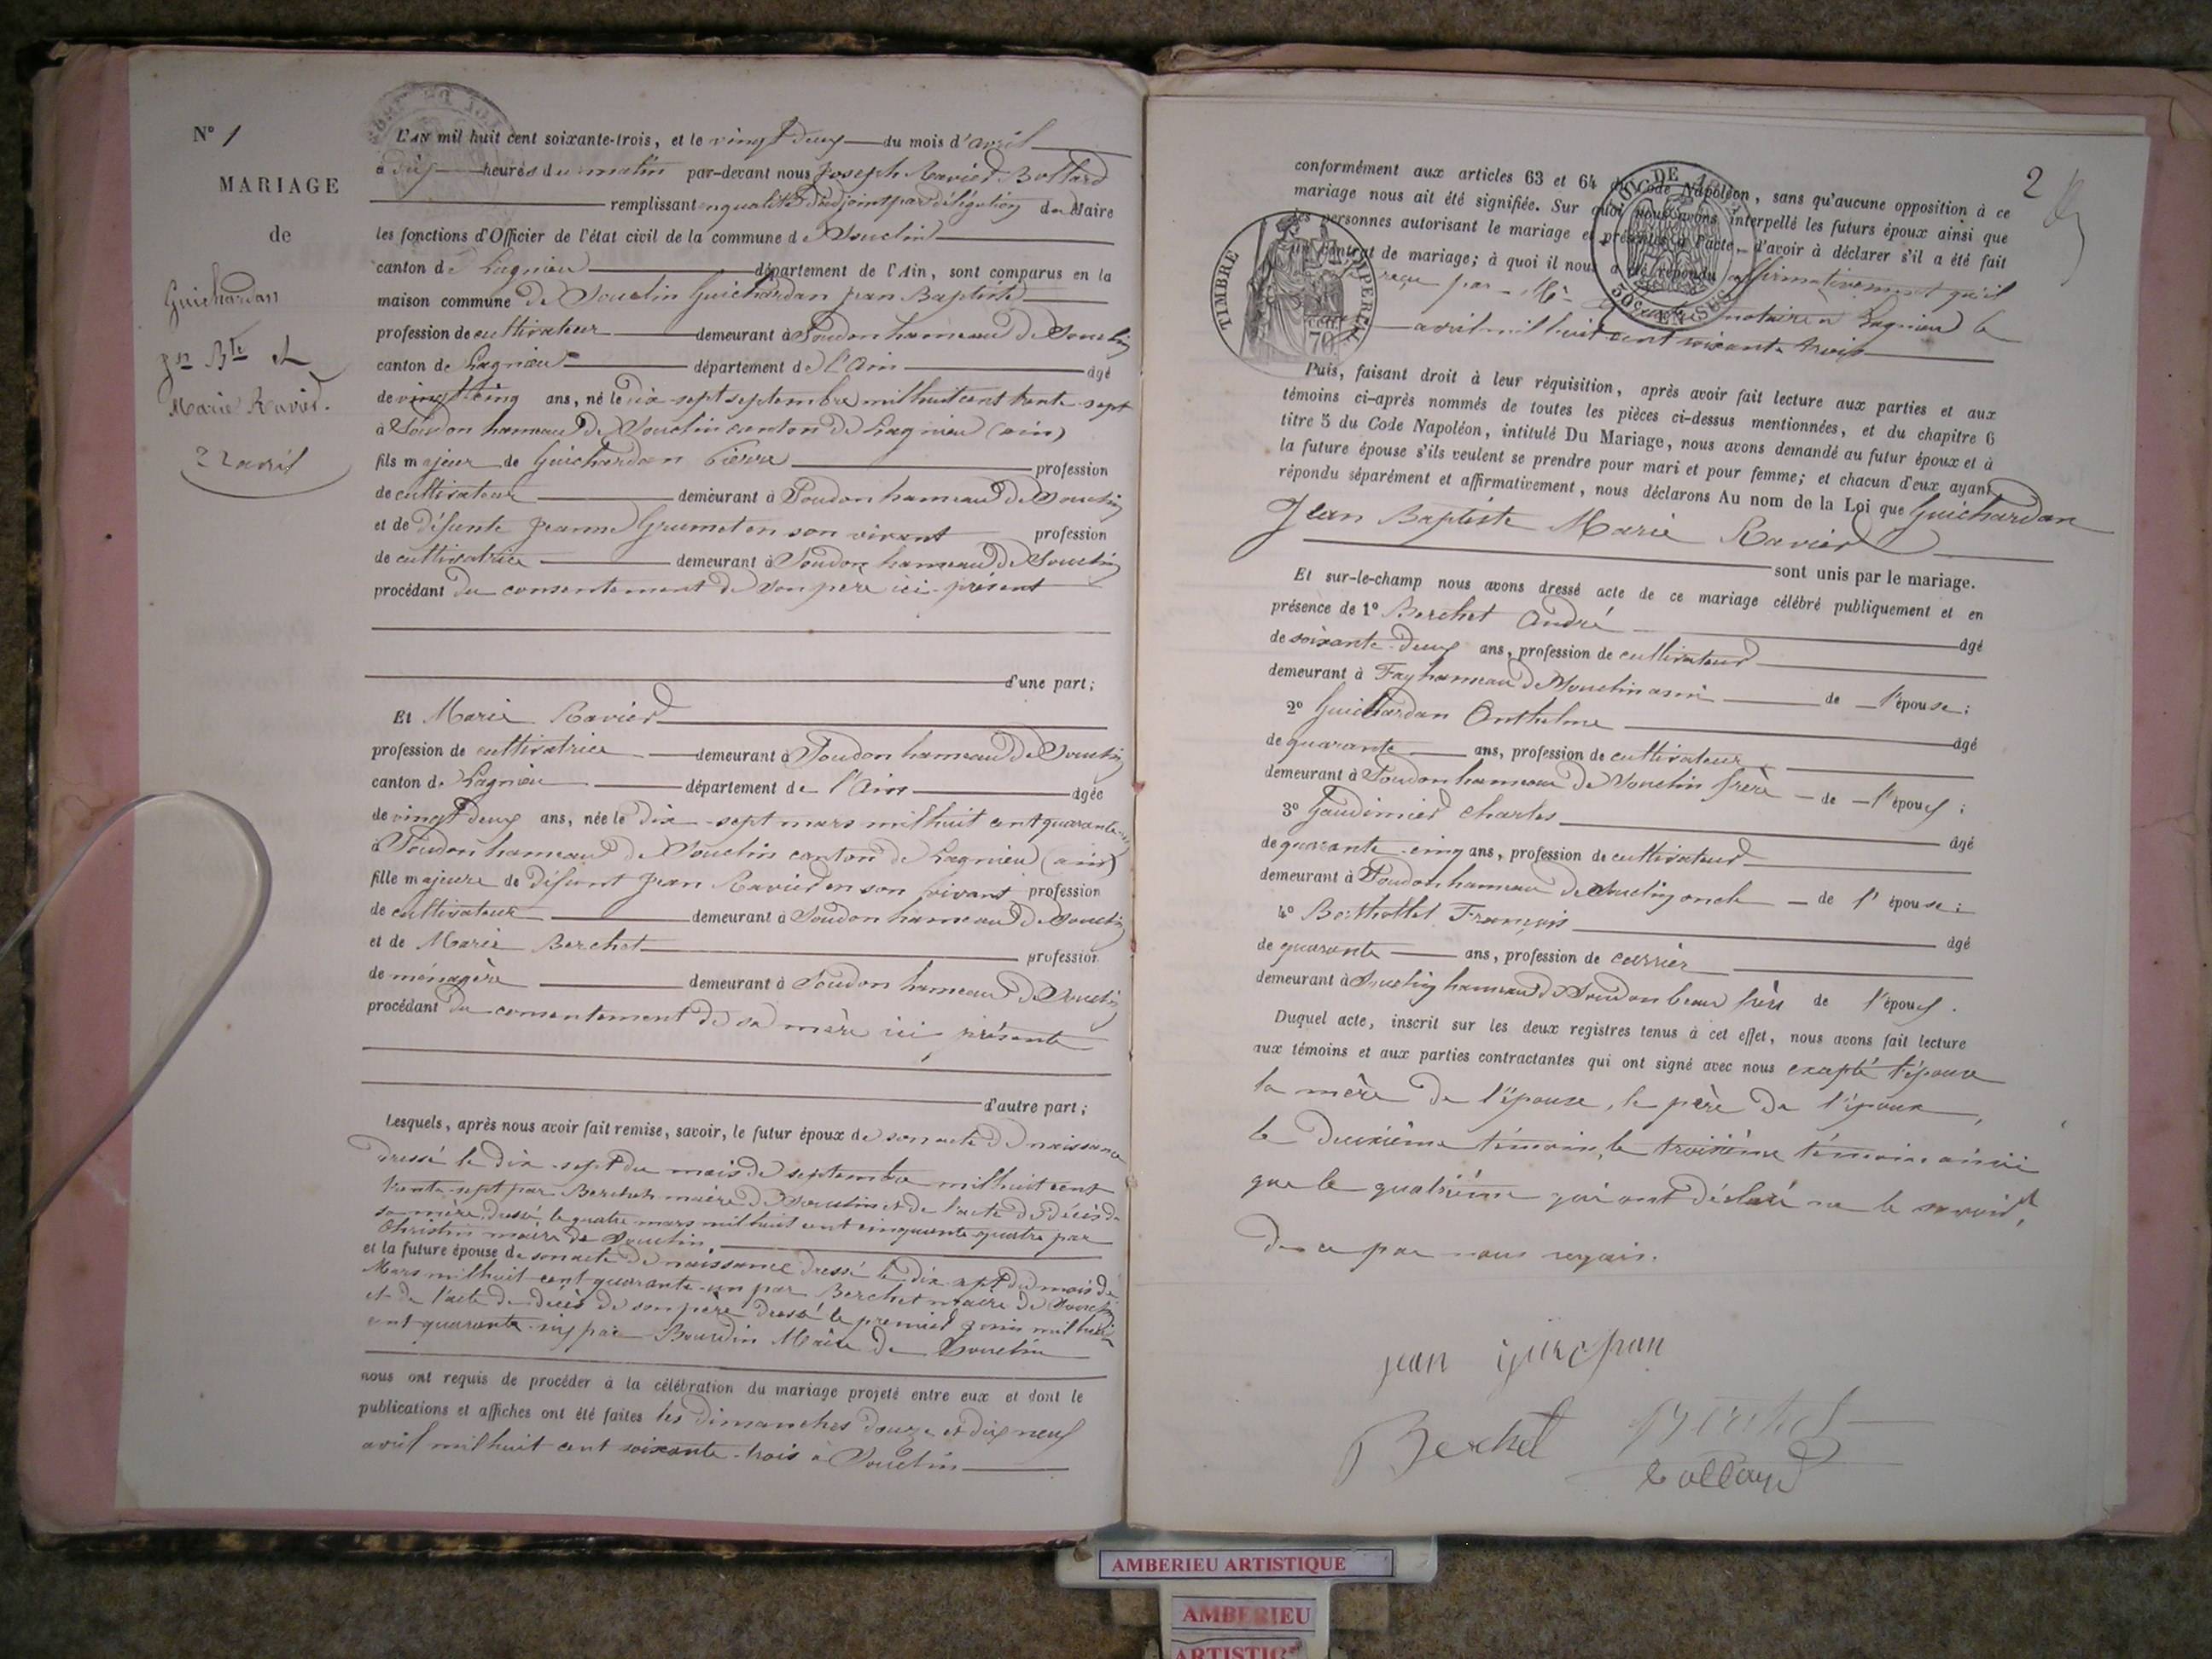 N° 1
MARIAGE
de
Guichardan
Jn Bte et
Marie Ravier.
22 avril
L'AN mil huit cent soixante-trois, et le vingt deux du mois d'avril
à heures du matin par-devant nous Joseph Ravier Bollard
remplissant en qualité d'adjoint par délégation du Maire
les fonctions d'Officier de l'état civil de la commune de Souclin
canton de Lagnieu département de l'Ain, sont comparus en la
maison commune de Souclin Guichardan jean Baptiste
profession de cultivateur demeurant à Soudon hameau de Souclin
canton de Lagnieu département de l'Ain âgé
de vingt cinq ans, né le dix sept septembre mil huit cent trente sept
à Soudon hameau de Souclin canton de Lagnieu (ain)
fils majeur de Guichardan Pierre profession
de cultivateur demeurant à Soudon hameau de Souclin
et de défunte Jeanne Grumet en son vivant profession
de cultivatrice demeurant à Soudon hameau de Souclin
procédant du consentement de son père ici présent
d'une part;
Et Marie Ravier
profession de cultivatrice demeurant à Soudon hameau de Souclin
canton de Lagnieu département de l'Ain âgée
de vingt deux ans, née le dix-sept mars mil huit cent quarante un
à Soudon hameau de Souclin canton de Lagnieu (ain)
fille majeure de défunt Jean Ravier en son vivant profession
de cultivateur demeurant à Soudon hameau de Souclin
et de Marie Berchet profession
de ménagère demeurant à Soudon hameau de Souclin
procédant du consentement de sa mère ici présente
d'autre part;
Lesquels, après nous avoir fait remise, savoir, le futur époux de son acte de naissance
dressé le dix-sept du mois de septembre mil huit cent
trente-sept par Berchet maire de Souclin et de l'acte de décès de
sa mère dressé le quatre mars mil huit cent cinquante quatre par
Christin maire de Souclin,
et la future épouse de son acte de naissance dressé le dix sept du mois de
Mars mil huit cent quarante-un par Berchet maire de Souclin
et de l'acte de décès de son père dressé le premier juin mil huit
cent quarante six par Bourdin Maire de Souclin
nous ont requis de procéder à la célébration du mariage projeté entre eux et dont le
publications et affiches ont été faites les dimanches douze et dix neuf
avril mil huit cent soixante-trois à Souclin
2
conformément aux articles 63 et 64 du Code Napoléon, sans qu'aucune opposition à ce
mariage nous ait été signifiée. Sur quoi nous avons interpellé les futurs époux ainsi que
les personnes autorisant le mariage et présentes à l'acte, d'avoir à déclarer s'il a été fait
un contrat de mariage; à quoi il nous a été répondu affirmativement qu'il
reçu par Me notaire à Lagnieu le
avril mil huit cent soixante trois
TIMBRE IMPERIAL
70
LOI DE
30c EN SUS
Puis, faisant droit à leur réquisition, après avoir fait lecture aux parties et aux
témoins ci-après nommés de toutes les pièces ci-dessus mentionnées, et du chapitre 6
titre 5 du Code Napoléon, intitulé Du Mariage, nous avons demandé au futur époux et à
la future épouse s'ils veulent se prendre pour mari et pour femme; et chacun d'eux ayant
répondu séparément et affirmativement, nous déclarons Au nom de la Loi que Guichardan
Jean Baptiste Marie Ravier
sont unis par le mariage.
Et sur-le-champ nous avons dressé acte de ce mariage célébré publiquement et en
présence de 1° Berchet André âgé
de soixante-deux ans, profession de cultivateur
demeurant à Fay hameau de Souclin ami de l'épouse;
2° Guichardan Anthelme âgé
de quarante ans, profession de cultivateur
demeurant à Soudon hameau de Souclin frère de l'époux;
3° Gaudimier Charles âgé
de quarante-cinq ans, profession de cultivateur
demeurant à Soudon hameau de Souclin oncle de l'épouse;
4° Berthollet François âgé
de quarante ans, profession de carrier
demeurant à Souclin hameau de Soudon beau frère de l'époux.
Duquel acte, inscrit sur les deux registres tenus à cet effet, nous avons fait lecture
aux témoins et aux parties contractantes qui ont signé avec nous excepté l'épouse
la mère de l'épouse, le père de l'époux,
le deuxième témoin, le troisième témoin ainsi
que le quatrième qui ont déclaré ne le savoir,
de ce par nous requis.
jean
Berchet
Bollard
AMBERIEU ARTISTIQUE
AMBERIEU
ARTISTIQ